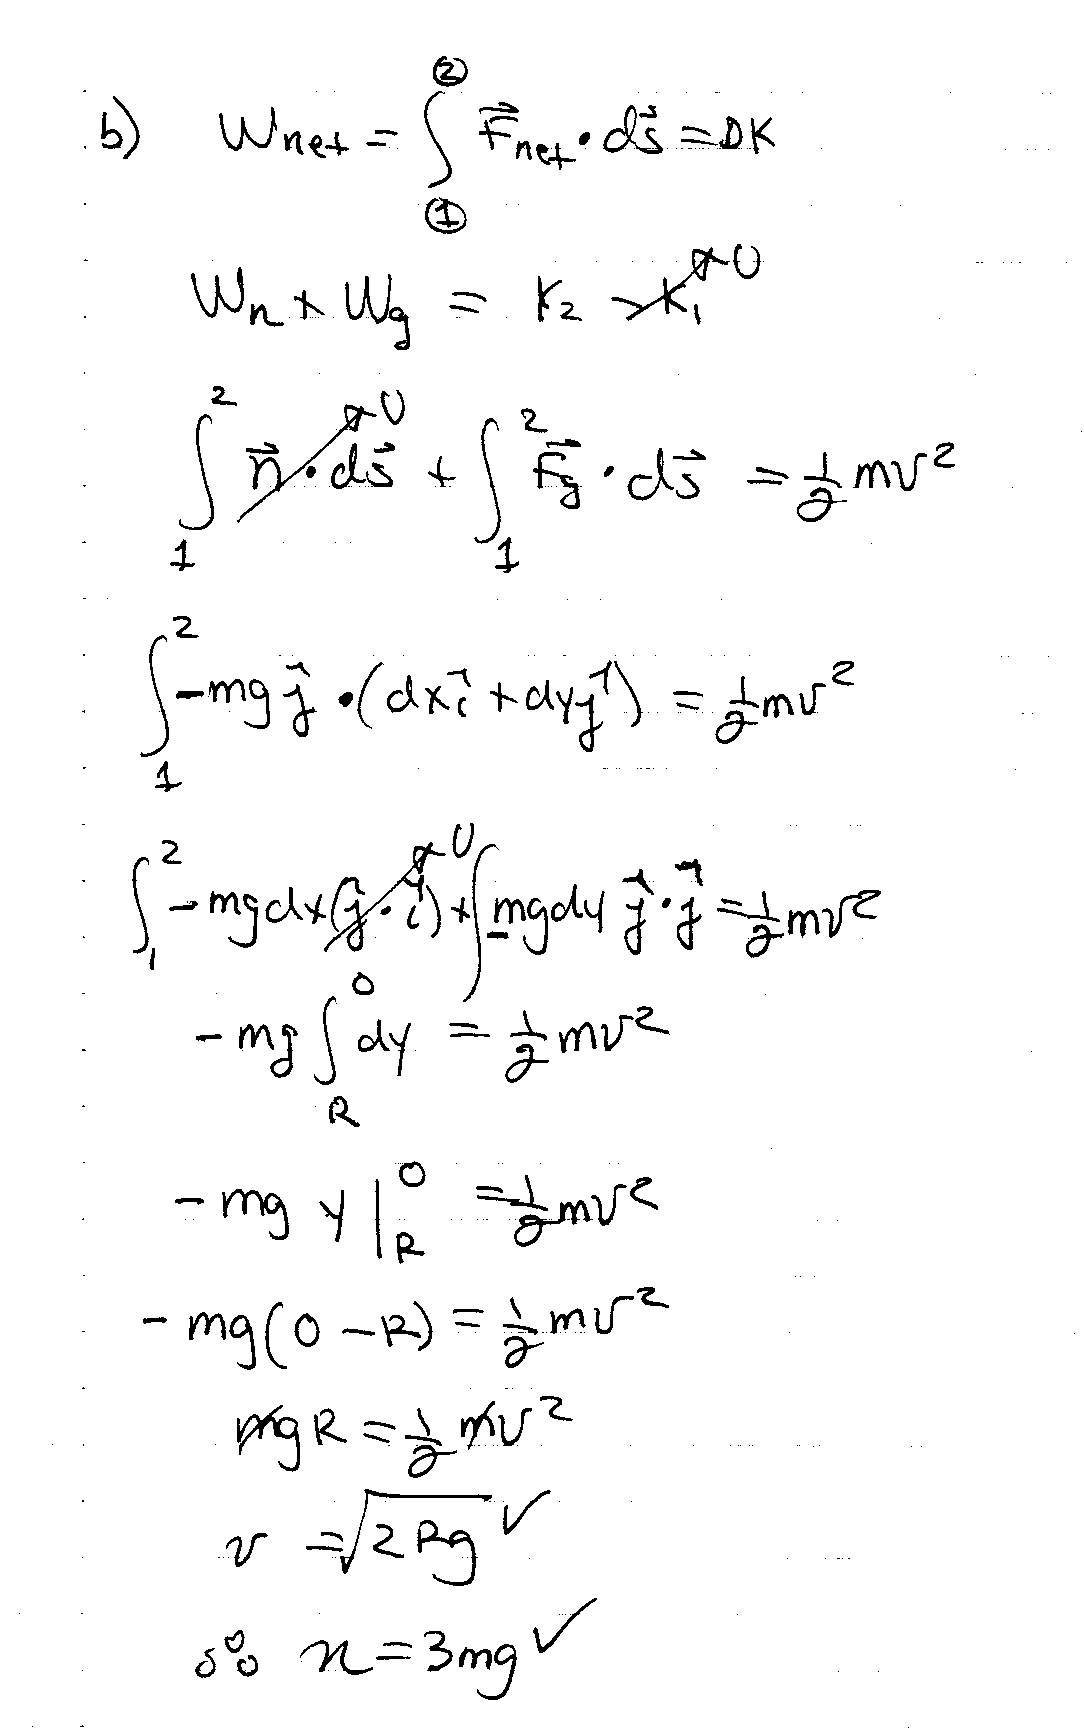 b) Wnet = ∫₁² F⃗net • ds⃗ = ΔK
Wn + Wg = K₂ - K₁ ↗0
∫₁² n⃗ • ds⃗ ↗0 + ∫₁² F⃗g • ds⃗ = ½ mv²
∫₁² -mg ĵ • (dx î + dy ĵ) = ½ mv²
∫₁² -mgdx(ĵ • î) ↗0 + ∫ -mgdy ĵ • ĵ = ½ mv²
-mg ∫_R^0 dy = ½ mv²
-mg y |_R^0 = ½ mv²
-mg(0 - R) = ½ mv²
mgR = ½ mv²
v = √(2Rg) ✓
∴ n = 3mg ✓